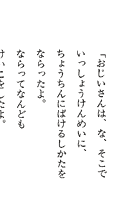 「おじいさんは、な、そこで
いっしょうけんめいに、
ちょうちんにばけるしかたを
ならったよ。
ならってなんども
けいこをしたよ。